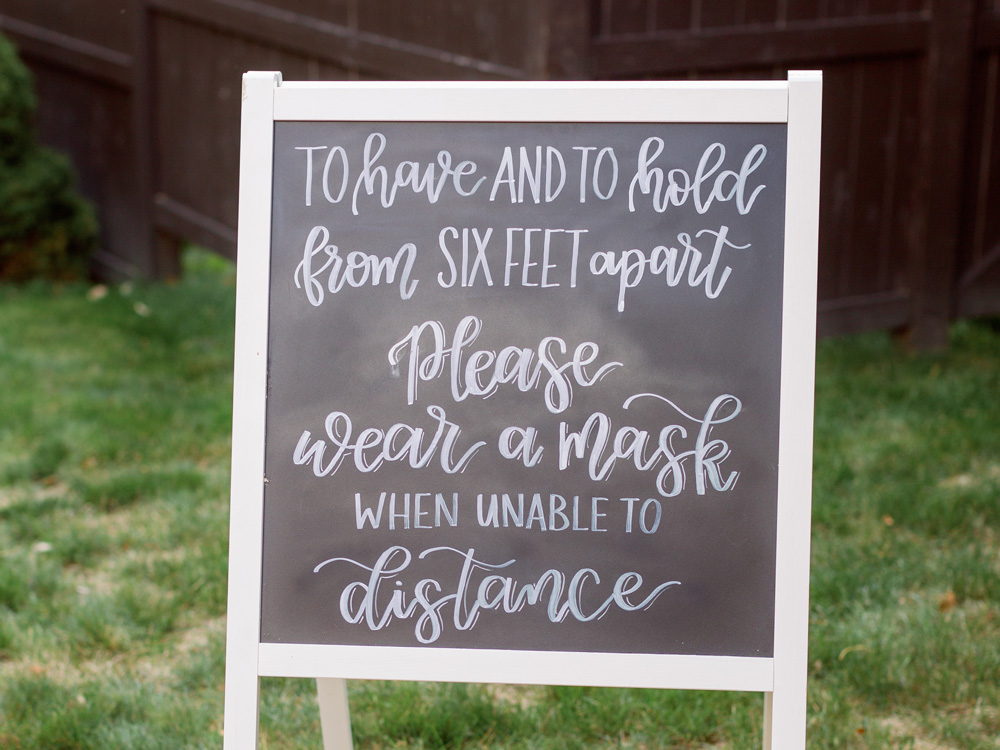 TO have AND TO hold
from SIX FEET apart
Please
wear a mask
WHEN UNABLE TO
distance